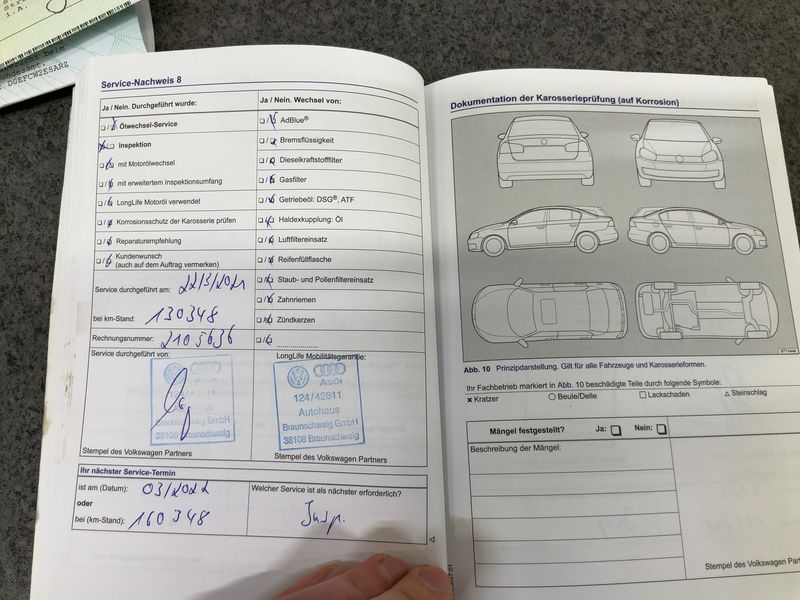 i.A.
DGEFCW2E8ARZ
Service-Nachweis 8
Ja / Nein. Durchgeführt wurde:
Ölwechsel-Service
Inspektion
mit Motorölwechsel
mit erweitertem Inspektionsumfang
LongLife Motoröl verwendet
Korrosionsschutz der Karosserie prüfen
Reparaturempfehlung
Kundenwunsch
(auch auf dem Auftrag vermerken)
Service durchgeführt am: 22/3/2021
bei km-Stand: 130348
Rechnungsnummer: 2105636
Service durchgeführt von:
Braunschweig GmbH
38108 Braunschweig
Stempel des Volkswagen Partners
Ja / Nein. Wechsel von:
AdBlue®
Bremsflüssigkeit
Dieselkraftstofffilter
Gasfilter
Getriebeöl: DSG®, ATF
Haldexkupplung: Öl
Luftfiltereinsatz
Reifenfüllflasche
Staub- und Pollenfiltereinsatz
Zahnriemen
Zündkerzen
LongLife Mobilitätsgarantie:
Audi
124/42811
Autohaus
Braunschweig GmbH
38108 Braunschweig
Stempel des Volkswagen Partners
Ihr nächster Service-Termin
ist am (Datum): 03/2022
oder
bei (km-Stand): 160348
Welcher Service ist als nächster erforderlich?
Insp.
Dokumentation der Karosserieprüfung (auf Korrosion)
Abb. 10 Prinzipdarstellung. Gilt für alle Fahrzeuge und Karosserieformen.
Ihr Fachbetrieb markiert in Abb. 10 beschädigte Teile durch folgende Symbole:
x Kratzer ○ Beule/Delle □ Lackschaden △ Steinschlag
Mängel festgestellt? Ja: Nein:
Beschreibung der Mängel:
Stempel des Volkswagen Part